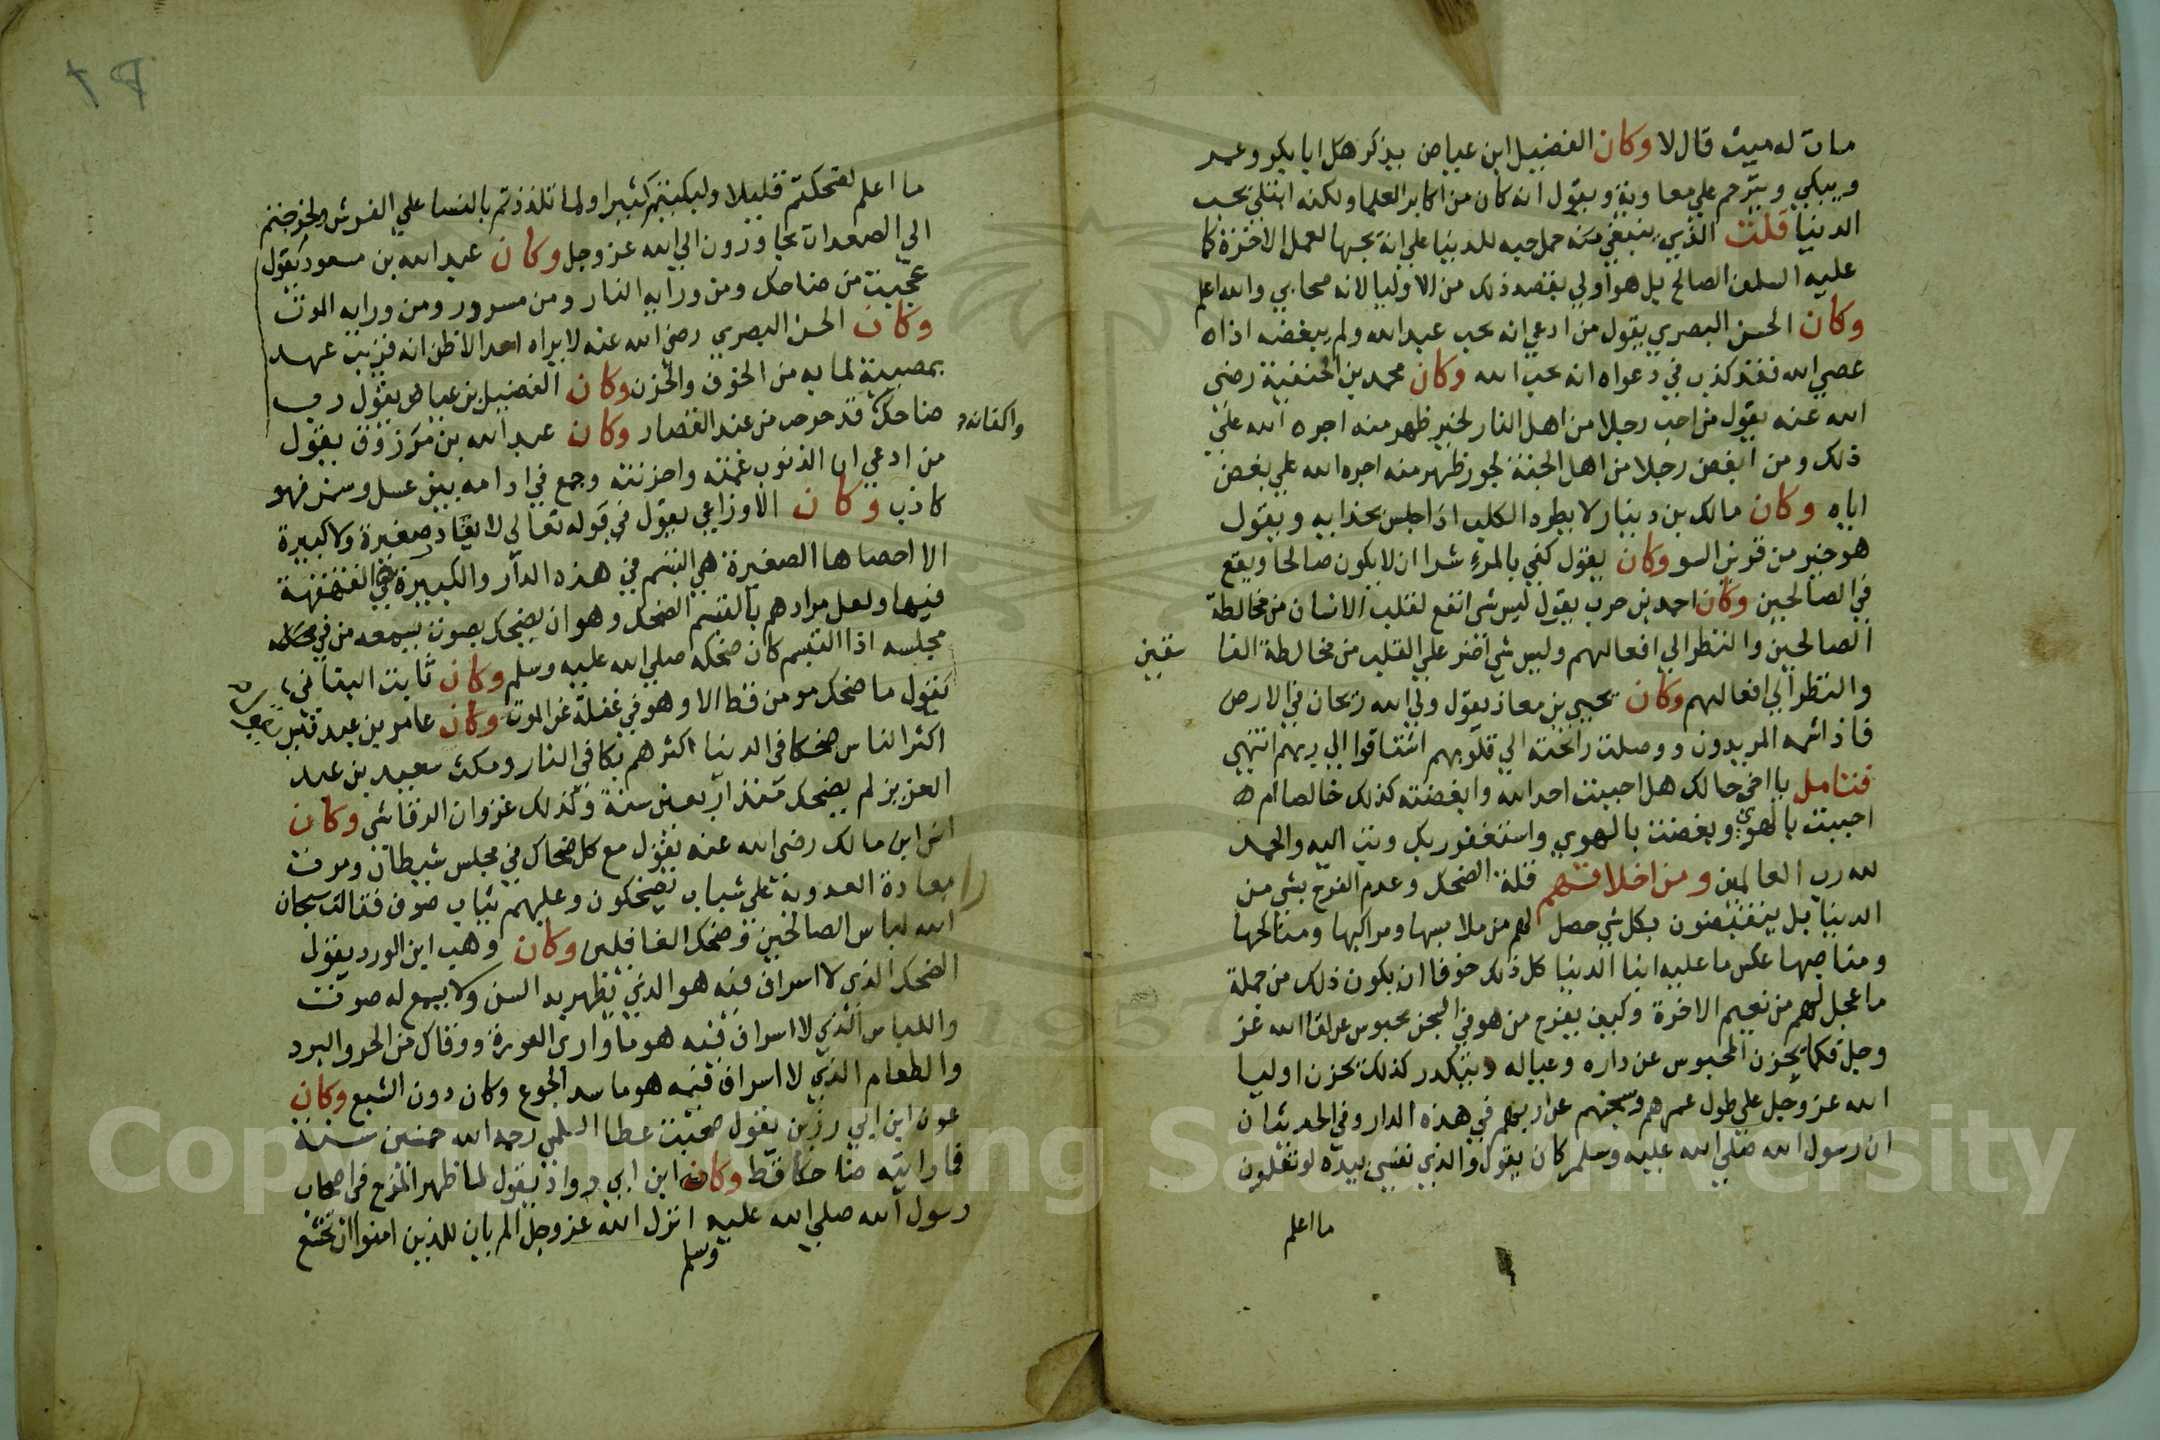 مات له ميت قال لا وكان الفضيل ابن عياض يذكر هكل ابا بكر وعمر
ويبكي ويترحم علي معاوية ويقول انه كان من اكابر العلما ولكنه ابتلي بحب
الدنيا قلت الذي ينبغي منه حمل حبه للدنيا علي انه يحبها لعمل الاخرة كما
عليه السلف الصالح بل هو اولي بقصد ذلك من الاوليا لانه صحابي والله اعلم
وكان الحسن البصري يقول من ادعي انه يحب عبد الله ولم يبغضه اذاه
عصي الله فقد كذب في دعواه انه يحب الله وكان محمد بن الحنفية رضي
الله عنه يقول من احب رجلا من اهل النار لخير ظهر منه اجره الله علي
ذلك ومن ابغض رجلا من اهل الجنة لجور ظهر منه اجره الله علي بغض
اياه وكان مالك بن دينار لا يطرد الكلب اذا جلس بحذايه ويقول
هو خير من قرين السو وكان يقول كفي بالمرء شرا ان لا يكون صالحا ويقع
في الصالحين وكان احمد بن حرب يقول ليس شي انفع لقلب الانسان من مخالطة
الصالحين والنظر الي افعالهم وليس شي اضر علي القلب من مخالطة الفا سقين
والنظر الي افعالهم وكان يحيي بن معاذ يقول ولي الله ريحان في الارض
فاذا شمه المريدون ووصلت رائحته الي قلوبهم اشتاقوا الي ربهم انتهي
فتامل يا اخي حالك هل احببت احد الله وابغضته كذلك خالصا ام
احببت بالهوي وبغضت بالهوي واستغفر ربك وتب اليه والحمد
لله رب العالمين ومن اخلاقهم قلة الضحك وعدم الفرح بشي من
الدنيا بل ينقبضون بكل شي حصل لهم من ملابسها ومراكبها ومناكحها
ومناصبها عكس ما عليه ابنا الدنيا كل ذلك خوفا ان يكون ذلك من جملة
ما عجل لهم من نعيم الاخرة وكيف يفرح من هو في السجن محبوس عن لقا الله عز
وجل فكما يحزن المحبوس عن داره وعياله ويتكدر كذلك يحزن اوليا
الله عز وجل علي طول عمرهم وسجنهم عن ربهم في هذه الدار وفي الحديث ان
ان رسول الله صلي الله عليه وسلم كان يقول والذي نفسي بيده لو تعلمون
ما اعلم
ما اعلم لضحكتم قليلا ولبكيتم كثيرا ولما تلذذتم بالنسا علي الفرش ولخرجتم
الي الصعدات تجاورون الي الله عز وجل وكان عبد الله بن مسعود يقول
عجبت من ضاحك ومن ورايه النار ومن مسرور ومن ورايه الموت
وكان الحسن البصري رضي الله عنه لا يراه احد الا ظن انه قريب عهد
بمصيبة لما به من الخوف والحزن وكان الفضيل بن عياض يقول رب
ضاحك واكفانه قد خرجت من عند القصار وكان عبد الله بن مرزوق يقول
من ادعي ان الذنوب غمته واحزنته وجمع في ادامه بين عسل وسمن فهو
كاذب وكان الاوزاعي يقول في قوله تعالي لا يغادر صغيرة ولا كبيرة
الا احصاها الصغيرة هي التبسم في هذه الدار والكبيرة هي القهقهة
فيها ولعل مرادهم بالتبسم الضحك وهو ان يضحك بصوت يسمعه من في
مجلسه اذا التبسم كان ضحكه صلي الله عليه وسلم وكان ثابت البناني
يقول ما ضحك مومن قط الا وهو في غفلة عن الموت وكان عامر بن عبد قيس يقول
اكثر الناس ضحكا في الدنيا اكثرهم بكا في النار ومكث سعيد بن عبد
العزيز لم يضحك منذ اربعين سنة وكذلك غزوان الرقاشي وكان
انس ابن مالك رضي الله عنه يقول مع كل ضحاك في مجلس شيطان ومرت
معادة العدوية علي شباب يضحكون وعليهم ثياب صوف فقالت سبحان
الله لباس الصالحين وضحك الغافلين وكان وهب ابن الورد يقول
الضحك الذي لا اسراف فيه هو الذي تظهر به السن ولا يسمع له صوت
واللباس الذي لا اسراف فيه هو ما واري العورة ووقاك من الحر والبرد
والطعام الذي لا اسراف فيه هو ما سد الجوع وكان دون الشبع وكان
عون ابن ابي رزين يقول صحبت عطا السلمي رحمه الله خمسين سنة
فما رايته ضاحكا قط وكان ابن ابي رواد يقول لما ظهر المزح في اصحاب
رسول الله صلي الله عليه وسلم انزل الله عز وجل الم يان للذين امنوا ان تخشع
Copyright © King Saud University
1957